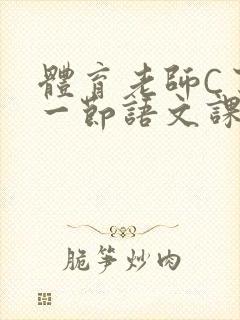 體育老師C
一節語文課
脆笋炒肉